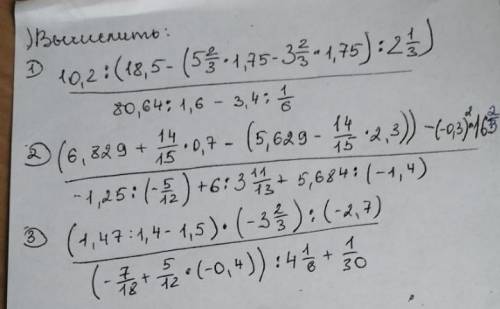 ) Вычислить:
1) 10,2 : (18,5 - (5 2/3 * 1,75 - 3 2/3 * 1,75) : 2 1/3)
80,64 : 1,6 - 3,4 : 1/6
2) (6,829 + 14/15 * 0,7 - (5,629 - 14/15 * 2,3)) - (-0,3)² * 16 2/3
-1,25 : (-5/12) + 6 : 3 11/13 + 5,684 : (-1,4)
3) (1,47 : 1,4 - 1,5) * (-3 2/3) : (-2,7)
(-7/18 + 5/12 * (-0,4)) : 4 1/6 + 1/30